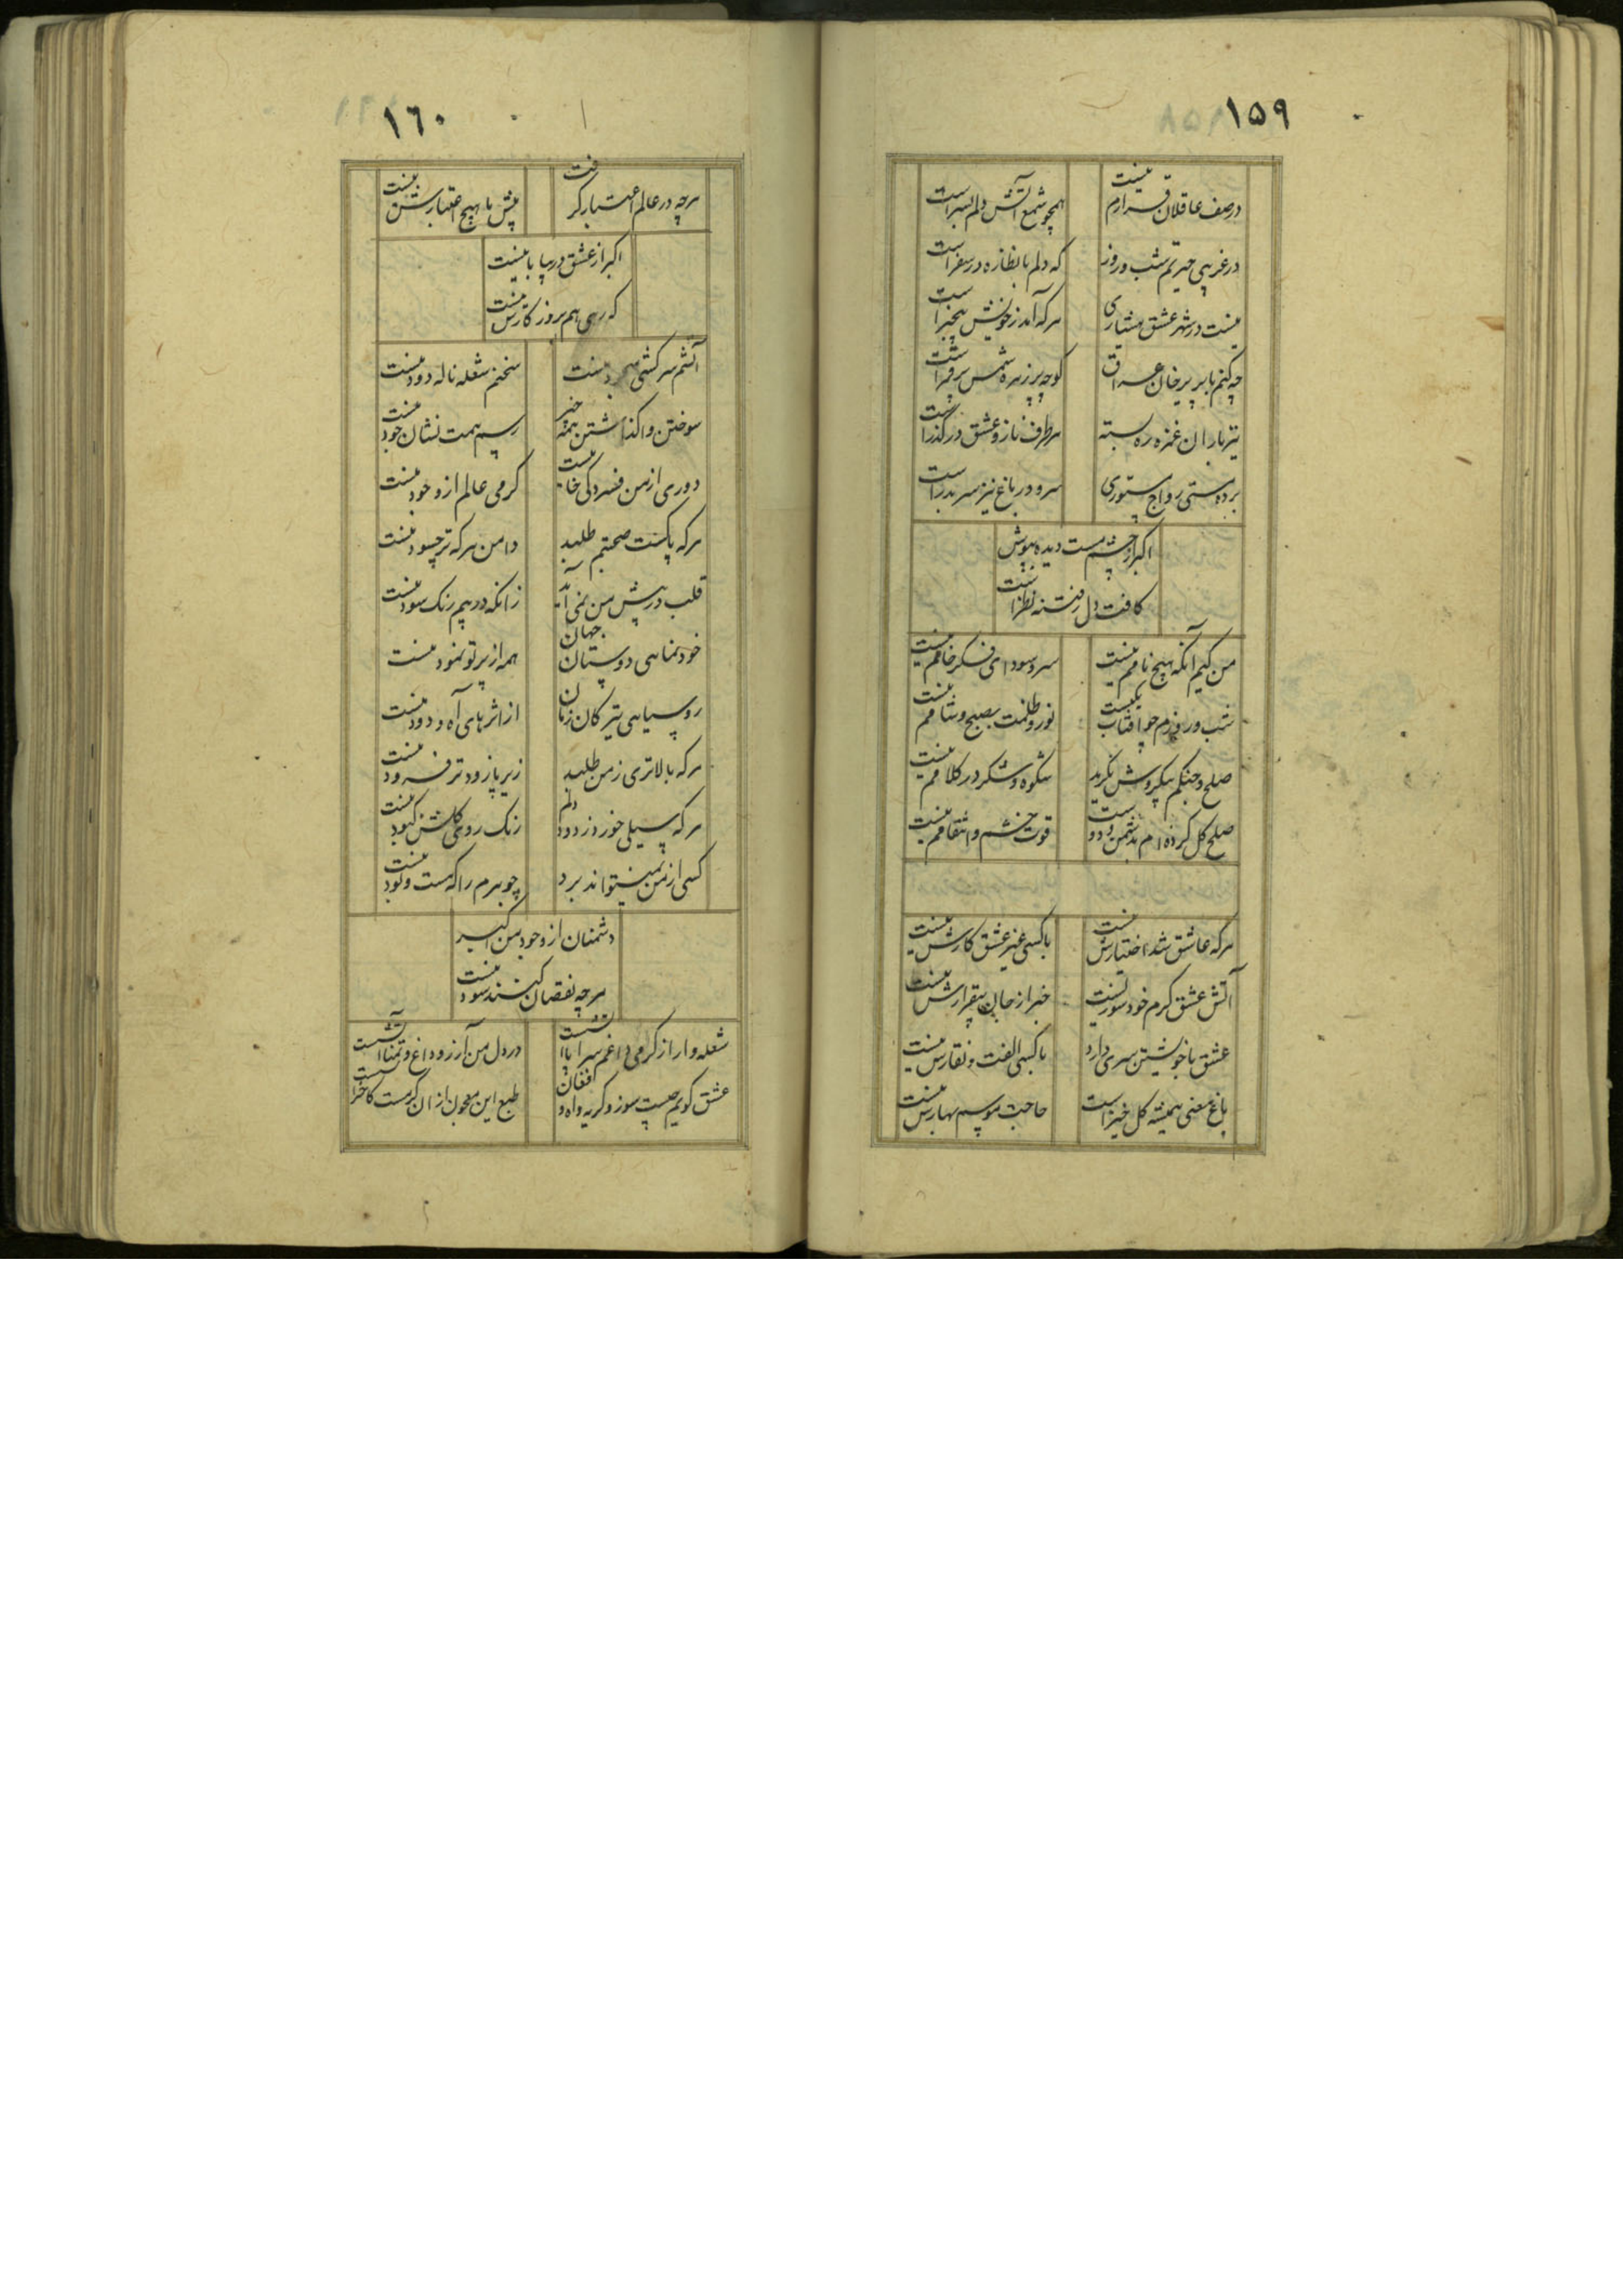 ۱۵۹
در صف عاقلان قرارم نیست
همچو شمع آتش دلم بسر است
در غریبی حیرتم شب و روز
که دلم با نظاره در سفر است
نیست در شهر عشق هشیاری
هرکه آمد ز خویش بیخبر است
چه کنم با پریرخان عراق
کوچه پر زهره شمس پر قمر است
تیرباران غمزه ره بسته
هر طرف ناز و عشق در گذر است
برده مستی رواج مستوری
سرو در باغ نیز سر بدر است
اکبر از چشم مست دیده بپوش
کافت دل ز فتنه نظر است
من کیم آنکه هیچ نامم نیست
سر و سودای فکر خامم نیست
شب و روزم چو آفتاب یکیست
نور و ظلمت بصبح و شامم نیست
صلح و جنگم بیکروش نگرید
شکوه و شکر در کلامم نیست
صلح کل کرده ام بدشمن و دوست
قوت خشم و انتقامم نیست
هرکه عاشق شد اختیارش نیست
با کسی غیر عشق کارش نیست
آتش عشق گرم خود سوزیست
خبر از جان بیقرارش نیست
عشق با خویشتن سری دارد
با کسی الفت و نقارش نیست
باغ معنی همیشه گل خیز است
حاجت موسم بهارش نیست
۱۶۰
هرچه در عالم اعتبار گرفت
پیش ما هیچ اعتبارش نیست
اکبر از عشق در بیابانیست
که رهی هم بروزگارش نیست
آتشم سرکشی نیست
سخنم شعله ناله دود نیست
سوختن واگذاشتن همه چیز
رسم همت نشان جود نیست
دوری از من فسردگی خامیست
گرمی عالم از وجود نیست
هرکه پاکست صحبتم طلبد
دامن هرکه تر چسود نیست
قلب در پیش من نمی آید
زانکه در هم رنگ سود نیست
خودنمایی دوستان جهان
همه از پرتو نمود نیست
روسیاهی تیرگان زمان
از اثرهای آه و دود نیست
هرکه بالاتری ز من طلبد
زیر پا زودتر فرود نیست
هرکه سیلی خورد ز دود دلم
رنگ روی گلش کبود نیست
کسی از من نمیتواند برد
جوهرم را که هست و بود نیست
دشمنان از وجود من اکبر
هرچه نقصان کنند سود نیست
شعله وار از گرمی داغم سراپا آتشست
در دل من آرزو داغ و تمنا آتشست
عشق گویم چیست سوز و گریه و آه و افغان
طبع این معجون از آن گرمست کاجزا آتشست